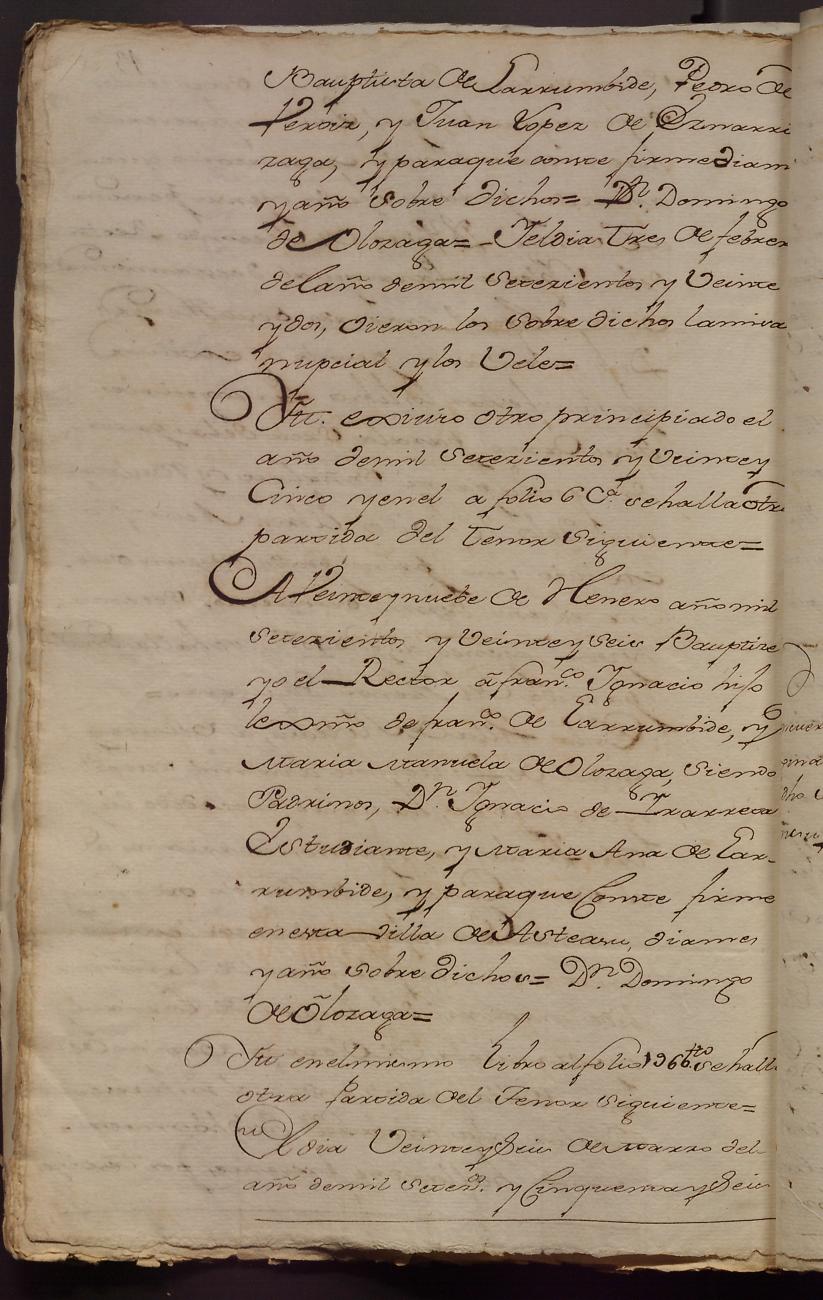 Bauptista de Larrumbide, Pedro de
Veroiz, y Juan Lopez de Izmarri
zaga, y paraque conste firme diam
y año sobre dichos= Dn. Domingo
de Olozaga= Jeldia Tres de febrer
del año demil setezientos y Veinte
ydos, dieron los sobre dichos lamisa
nupcial y los Vele=
Itt. exsivio otro principiado el
año demil setezientos y Veintey
Cinco yenel a folio 6 sehalla otr
partida del tenor siguiente=
A Veinteynuebe de Henero año mil
setezientos y Veinteyseis Bauptize
yo el Rector à franco. Ignacio hijo
lexmo de franco. de Larrumbide, y
Maria Manuela de Olozaga, siendo
Padrinos, Dn. Ignacio de Irarreta
Estudiante, y Maria Ana de Lar-
rumbide, y paraque Conste firme
enesta Villa de Asteasu, diames
y año sobre dichos= Dn. Domingo
de Olozaga=
Itt enelmismo libro alfolio 196 bto. sehall
otra Partida del Tenor siguiente=
El dia Veinteyseis de Marzo del
año demil setezs. y Cinquentayseis